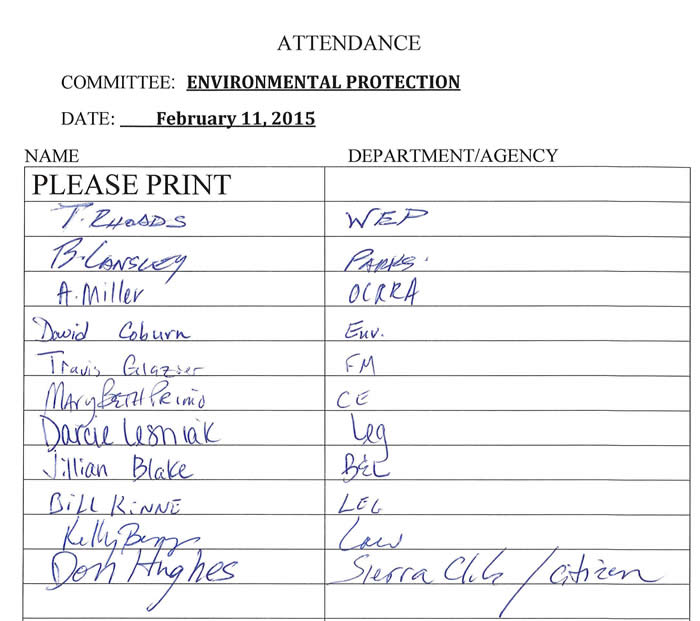 ATTENDANCE
COMMITTEE: ENVIRONMENTAL PROTECTION
DATE: February 11, 2015
NAME DEPARTMENT/AGENCY
PLEASE PRINT
T. RHOADS WEP
B. LANSLEY PARKS.
A. Miller OCRRA
David Coburn Env.
Travis Glazier FM
MARY BETH PRIMO CE
Darcie Lesniak Leg
Jillian Blake
BILL KINNE LEG
Kelly Law
Don Hughes Sierra Club / citizen